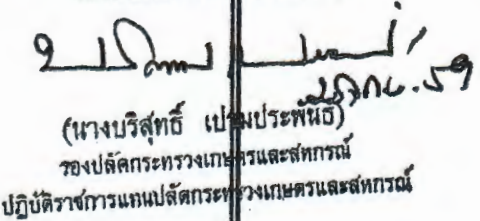 (นางบริสุทธิ์ เปรมประพันธ์)
รองปลัดกระทรวงเกษตรและสหกรณ์
ปฏิบัติราชการแทนปลัดกระทรวงเกษตรและสหกรณ์